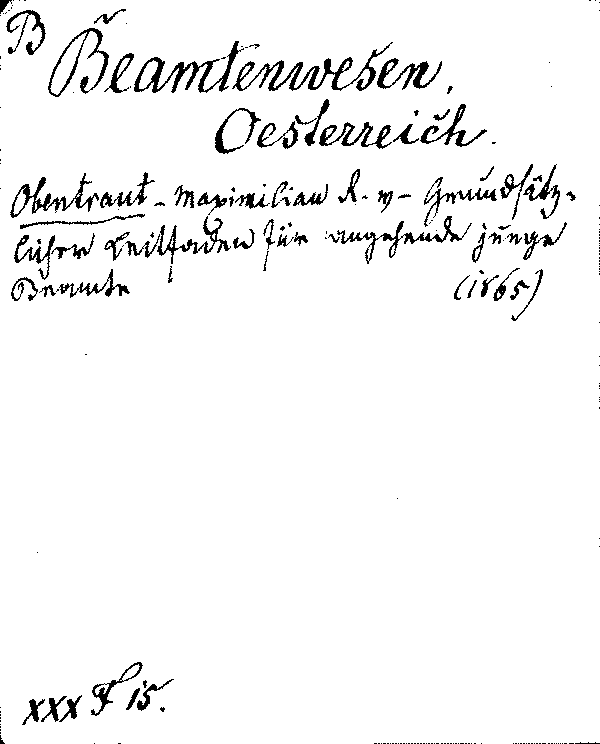 B
Beamtenwesen,
Oesterreich.
Obentraut - Maximilian R. v - Grundsätz-
licher Leitfaden für angehende junge
Beamte (1865)
XXX F 15.